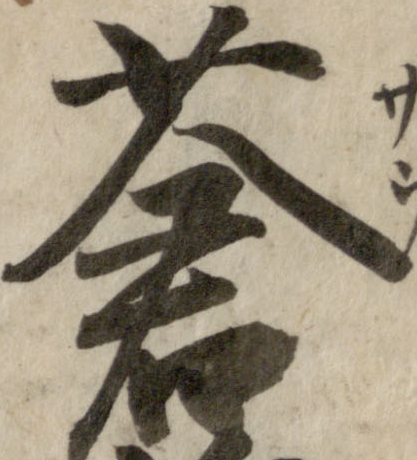 蒼
サン